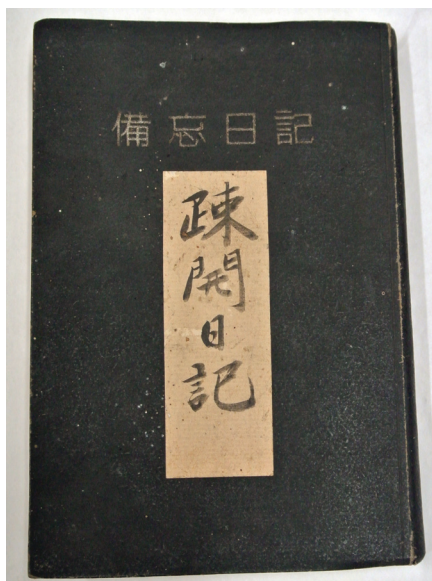 備忘日記
疎開日記